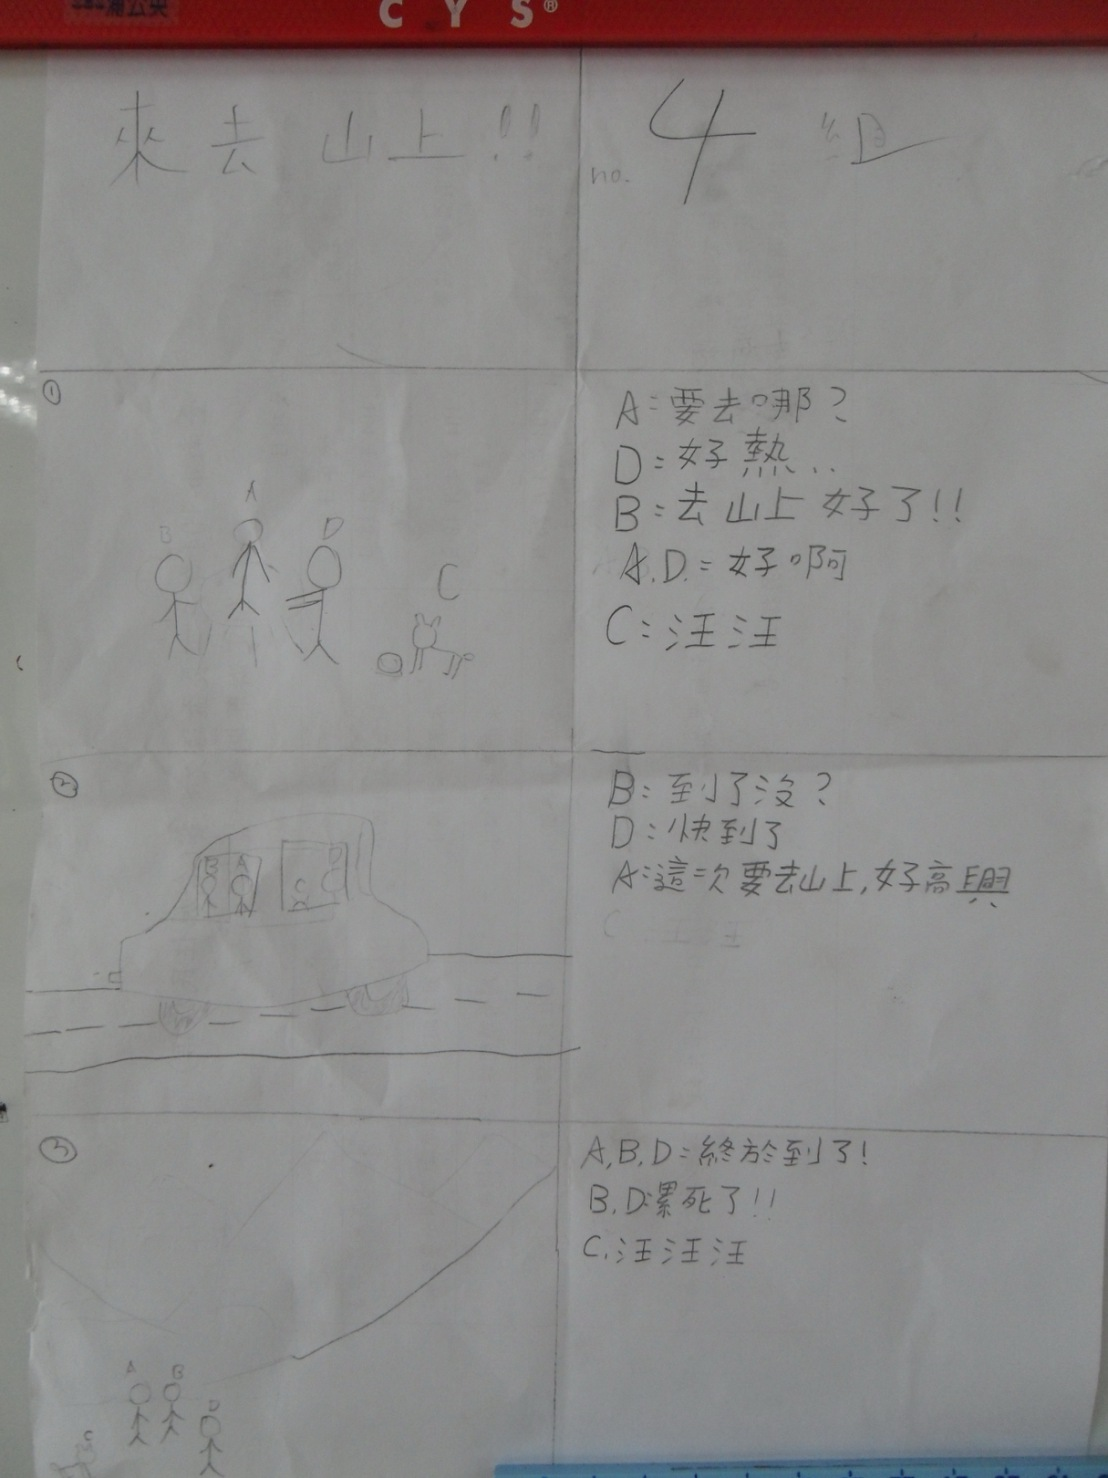 C Y S®
來去山上!!
no. 4 組
①
B
A
D
C
A:要去哪?
D:好熱..
B:去山上好了!!
A.D.:好啊
C:汪汪
②
B A
C D
B:到了沒?
D:快到了
A:這次要去山上,好高興
③
A B
D
C
A,B,D:終於到了!
B,D:累死了!!
C.汪汪汪